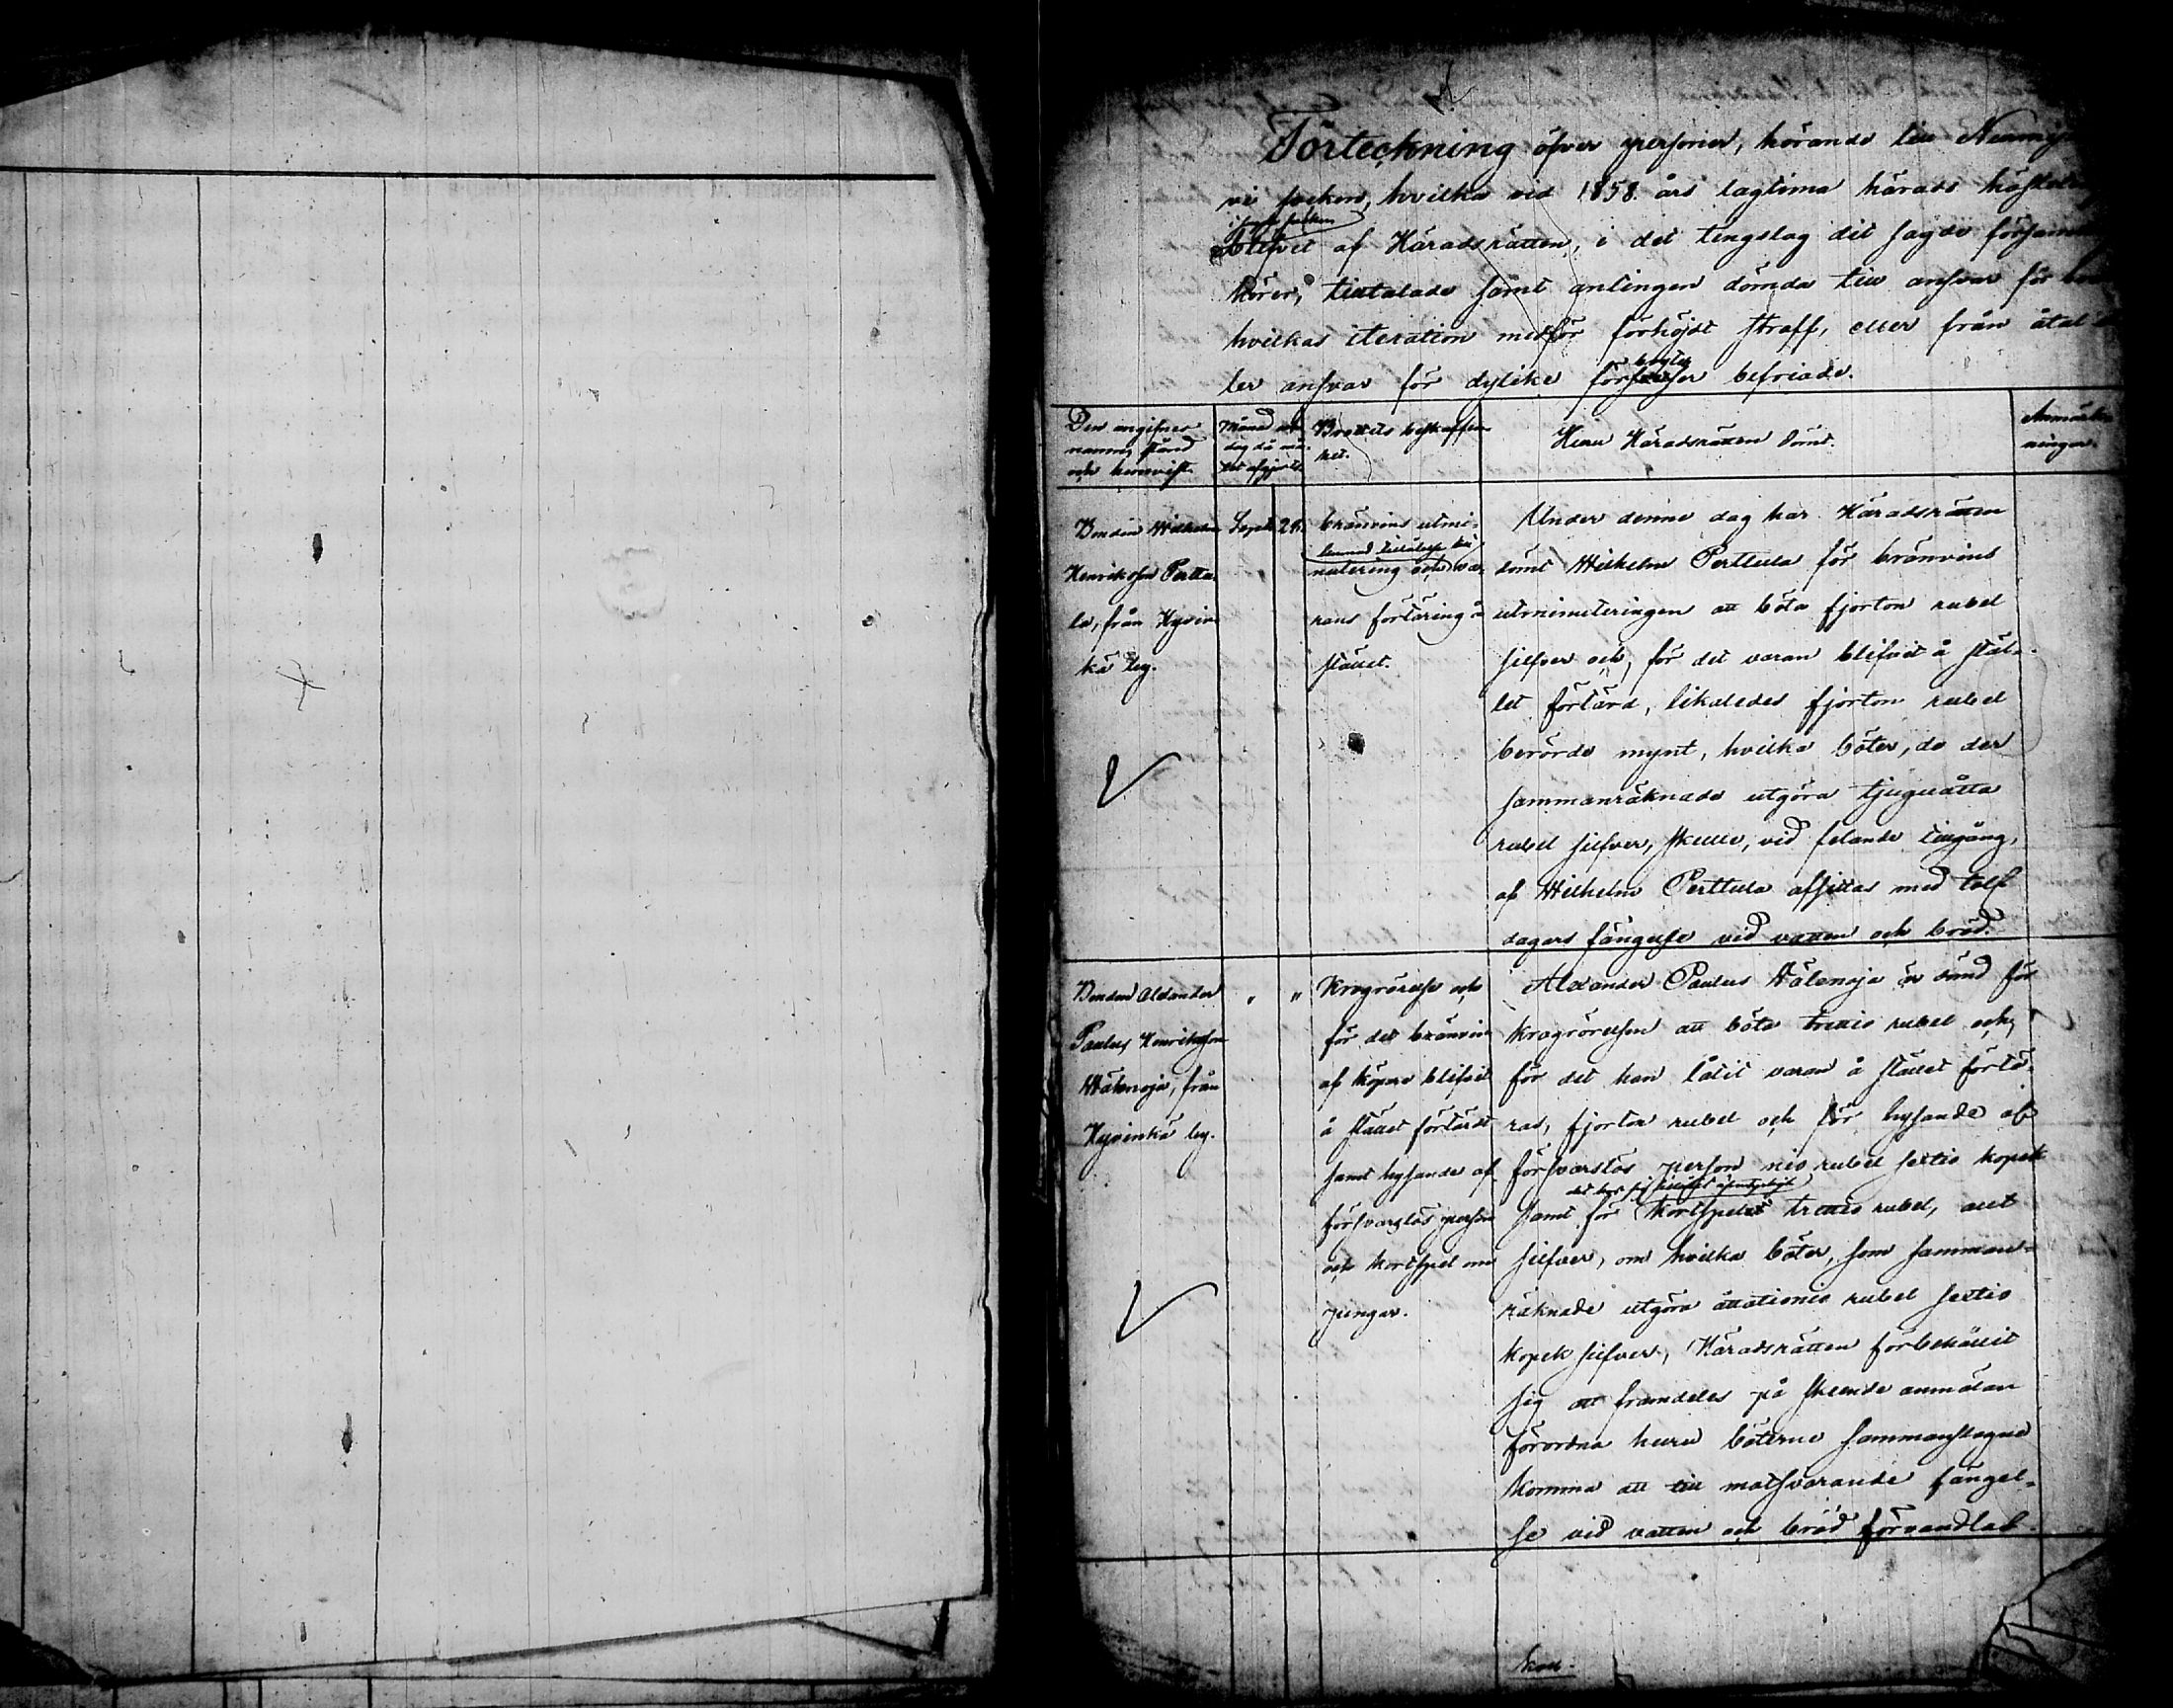 Förteckning öfver personer, hörande till Nurmijär
vi socken, hvilka vid 1858 års lagtima härads hösteting
i sagde socken
blifvit af Häradsrätten, i det tingslag dit sagde församling
hörer, tilltalade samt antingen dömda till ansvar för brott
hvilkas iteration medför förhöjdt straff, eller från åtal el
ler ansvar för dylika förbrytelser befriade.
Den angifnes
namn, stånd
och hemvist.
Månad och
dag då må-
let afgjorts.
Brottets beskaffen
het.
Huru Häradsrätten dömt.
Anmärk-
ningar.
Bonden Wilhelm
Henriksson Perttu
la, från Hyvin
kä by.
Sept. 28.
bränvins utmi-
lemnad tillåtelse till
nutering och va-
rans förtäring å
stället.
Under denne dag har Häradsrätten
dömt Wilhelm Perttula för bränvins
utminuteringen att böta fjorton rubel
silfver och, för det varan blifvit å stäl-
let förtärd, likaledes fjorton rubel
berörde mynt, hvilka böter, de der
sammanräknade utgöra tjuguåtta
rubel silfver, skulle, vid felande tillgång,
af Wilhelm Perttula afsittas med tolf
dagars fängelse vid vatten och bröd.
Bonden Alexander
Paulus Henriksson
Wälenoja, från
Hyvinkä by.
" "
Krogrörelse och
för det bränvin
af köpare blifvit
å stället förtärdt
samt hysande af
försvarslös person
och kortspel om
pengar.
Alexander Paulus Wälenoja är dömd för
krogrörelsen att böta trettio rubel och,
för det han låtit varan å stället förtä-
ras, fjorton rubel och för hysande af
försvarslös person nio rubel sextio kopek
samt för kortspelet trettio rubel, allt
silfver, om hvilka böter, som samman-
räknade utgöra åttationio rubel sextio
kopek silfver, Häradsrätten förbehållit
sig att framdeles på skeende anmälan
förordna huru böterne sammanslagne
komma att till motsvarande fängel-
se vid vatten och bröd förvandlas.